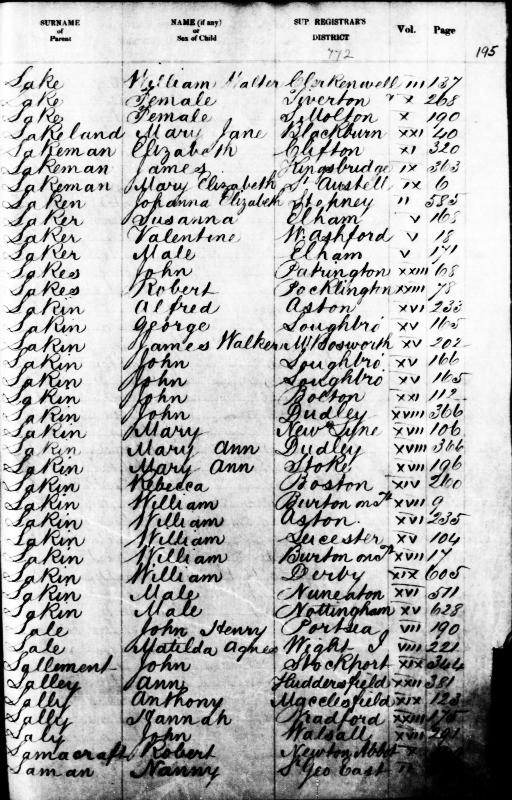 SURNAME of Parent NAME (if any) or Sex of Child SUP REGISTRAR'S DISTRICT Vol. Page
772 195
Lake William Walter Clerkenwell III 137
Lake Female Tiverton X 268
Lake Female S. Molton X 190
Lakeland Mary Jane Blackburn XXI 40
Lakeman Elizabeth Clifton XI 320
Lakeman James Kingsbridge IX 363
Lakeman Mary Elizabeth St Austell IX 6
Laken Johanna Elizabeth Stepney II 585
Laker Susanna Elham V 168
Laker Valentine W. Ashford V 18
Laker Male Elham V 171
Lakes John Patrington XXIII 68
Lakes Robert Pocklington XXIII 78
Lakin Alfred Aston XVI 233
Lakin George Loughbro XV 165
Lakin James Walker M. Bosworth XV 202
Lakin John Loughbro XV 166
Lakin John Loughbro XV 165
Lakin John Bolton XXI 112
Lakin John Dudley XVIII 366
Lakin Mary Newc Lyne XVII 106
Lakin Mary Ann Dudley XVIII 366
Lakin Mary Ann Stoke XVII 196
Lakin Rebecca Boston XIV 260
Lakin William Burton on Tt XVII 9
Lakin William Aston XVI 235
Lakin William Leicester XV 104
Lakin William Burton on Tt XVII 17
Lakin William Derby XIX 605
Lakin Male Nuneaton XVI 511
Lakin Male Nottingham XV 628
Lale John Henry Portsea VII 190
Lale Matilda Agnes Wight I VIII 221
Lallement John Stockport XIX 344
Lalley Ann Huddersfield XXII 381
Lally Anthony Macclesfield XIX 123
Lally Hannah Bradford XXIII 175
Laly John Walsall XVII 291
Lamacraft Robert Newton Abbot X
Laman Nanny St Geo East II